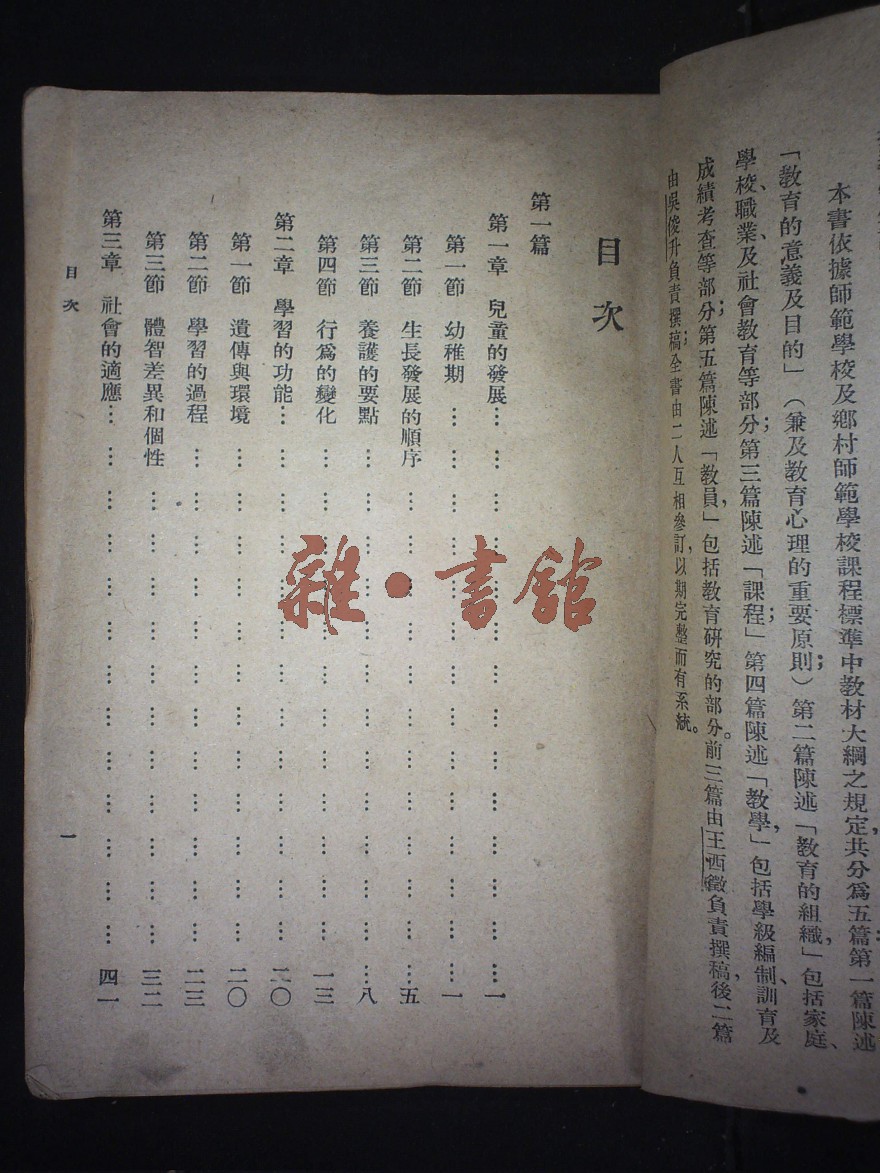 本書依據師範學校及鄉村師範學校課程標準中教材大綱之規定，共分爲五篇：第一篇陳述
「教育的意義及目的」（兼及教育心理的重要原則）；第二篇陳述「教育的組織」，包括家庭、
學校、職業、及社會教育等部分；第三篇陳述「課程」；第四篇陳述「教學」，包括學級編制、訓育及
成績考查等部分；第五篇陳述「教員」，包括教育研究的部分。前三篇由王西徵負責撰稿，後二篇
由吳俊升負責撰稿；全書由二人互相參訂，以期完整而有系統。
目次
第一篇
第一章 兒童的發展…………………………………一
第一節 幼稚期…………………………………一
第二節 生長發展的順序…………………………………五
第三節 養護的要點…………………………………八
第四節 行爲的變化…………………………………一三
第二章 學習的功能…………………………………二〇
第一節 遺傳與環境…………………………………二〇
第二節 學習的過程…………………………………二三
第三節 體智差異和個性…………………………………三二
第三章 社會的適應…………………………………四一
目次
一
雜·書館